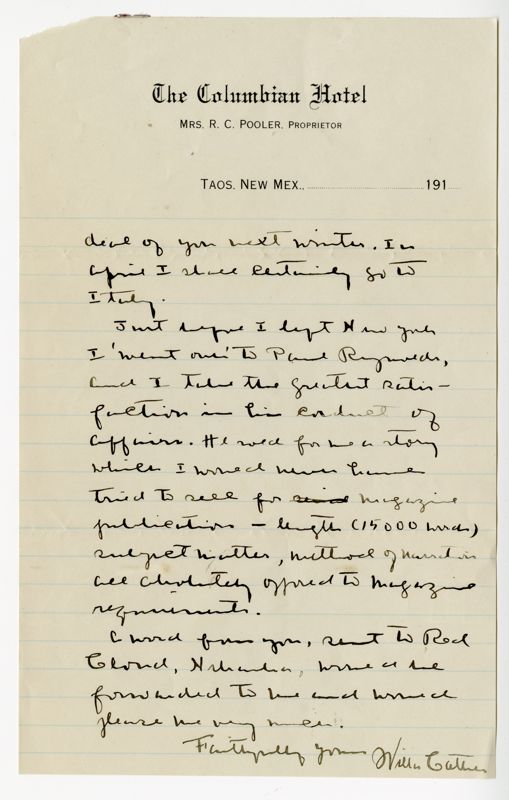 The Columbian Hotel
MRS. R. C. POOLER, PROPRIETOR
TAOS, NEW MEX., 191
deal of you next winter. In
April I shall certainly go to
Italy.
Just before I left New York
I 'went over' to Paul Reynolds,
and I take the greatest satis-
faction in his conduct of
affairs. He sold for me a story
which I would never have
tried to sell for magazine
publication — length (15000 words)
subject matter, method of narration
all absolutely opposed to magazine
requirements.
A word from you, sent to Red
Cloud, Nebraska, would be
forwarded to me and would
please me very much.
Faithfully yours
Willa Cather